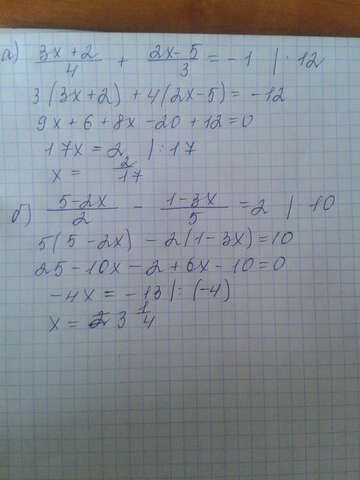 а) (3x+2)/4 + (2x-5)/3 = -1 | · 12
3(3x+2) + 4(2x-5) = -12
9x + 6 + 8x - 20 + 12 = 0
17x = 2 | : 17
x = 2/17
б) (5-2x)/2 - (1-3x)/5 = 2 | 10
5(5-2x) - 2(1-3x) = 10
25 - 10x - 2 + 6x - 10 = 0
-4x = -13 | : (-4)
x = 3 1/4